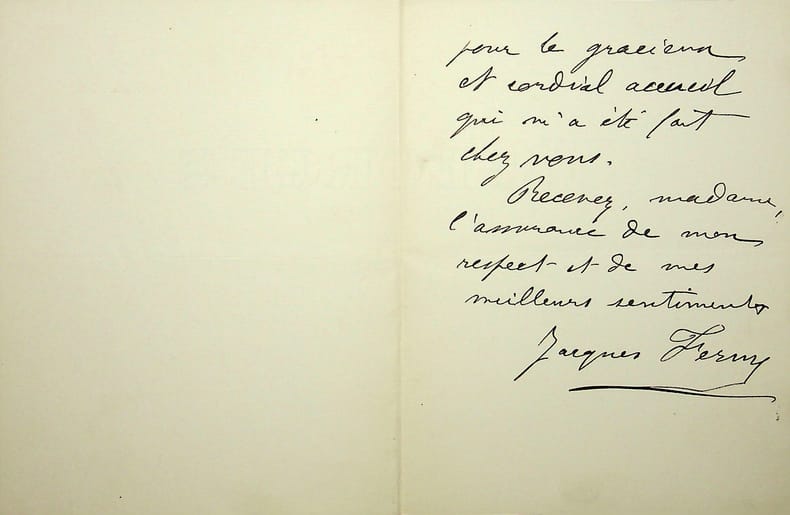 pour le gracieux
et cordial accueil
qui m'a été fait
chez vous.
Recevez, madame,
l'assurance de mon
respect et de mes
meilleurs sentiments
Jacques Ferny